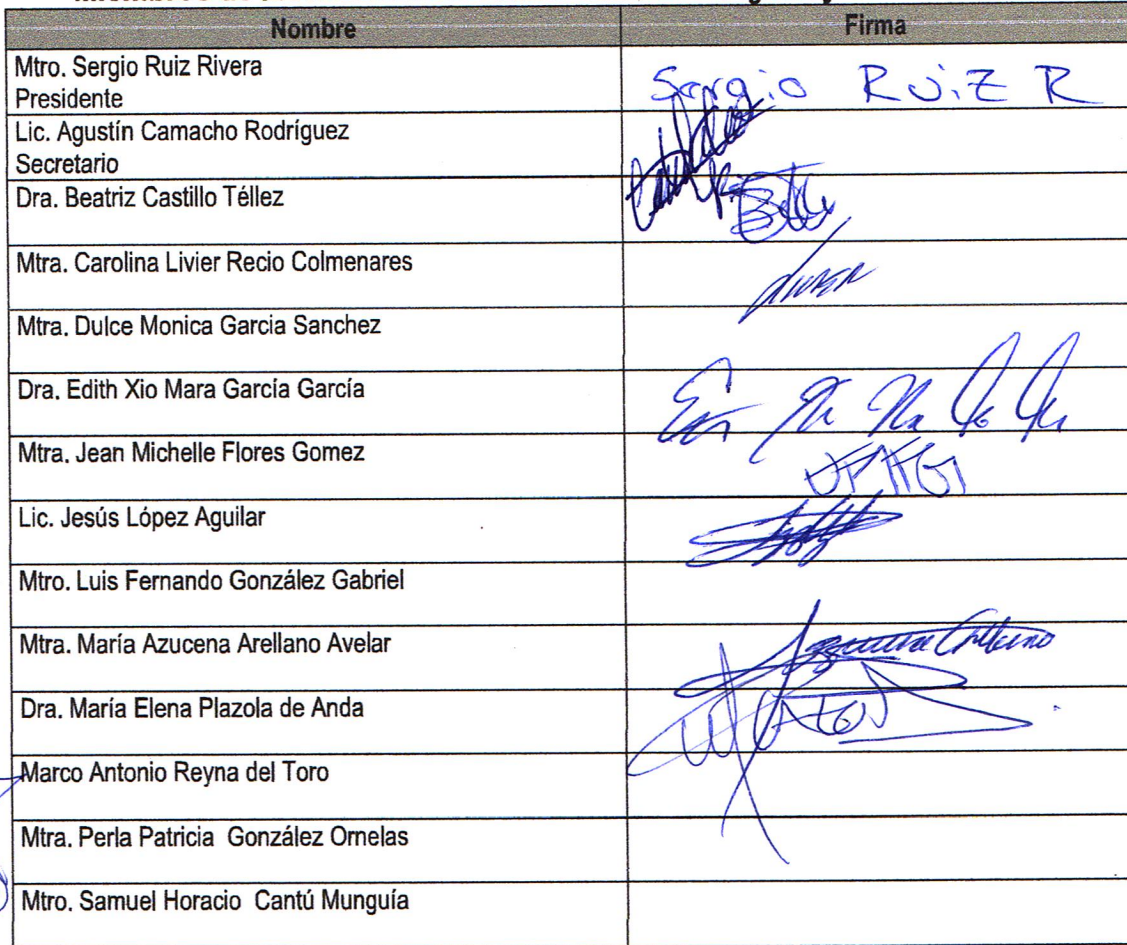 Nombre Firma
Mtro. Sergio Ruiz Rivera
Presidente
Sergio Ruiz R
Lic. Agustín Camacho Rodríguez
Secretario
Dra. Beatriz Castillo Téllez
Mtra. Carolina Livier Recio Colmenares
Mtra. Dulce Monica Garcia Sanchez
Dra. Edith Xio Mara García García
Mtra. Jean Michelle Flores Gomez
JFMG
Lic. Jesús López Aguilar
Mtro. Luis Fernando González Gabriel
Mtra. María Azucena Arellano Avelar
Dra. María Elena Plazola de Anda
Marco Antonio Reyna del Toro
Mtra. Perla Patricia González Ornelas
Mtro. Samuel Horacio Cantú Munguía